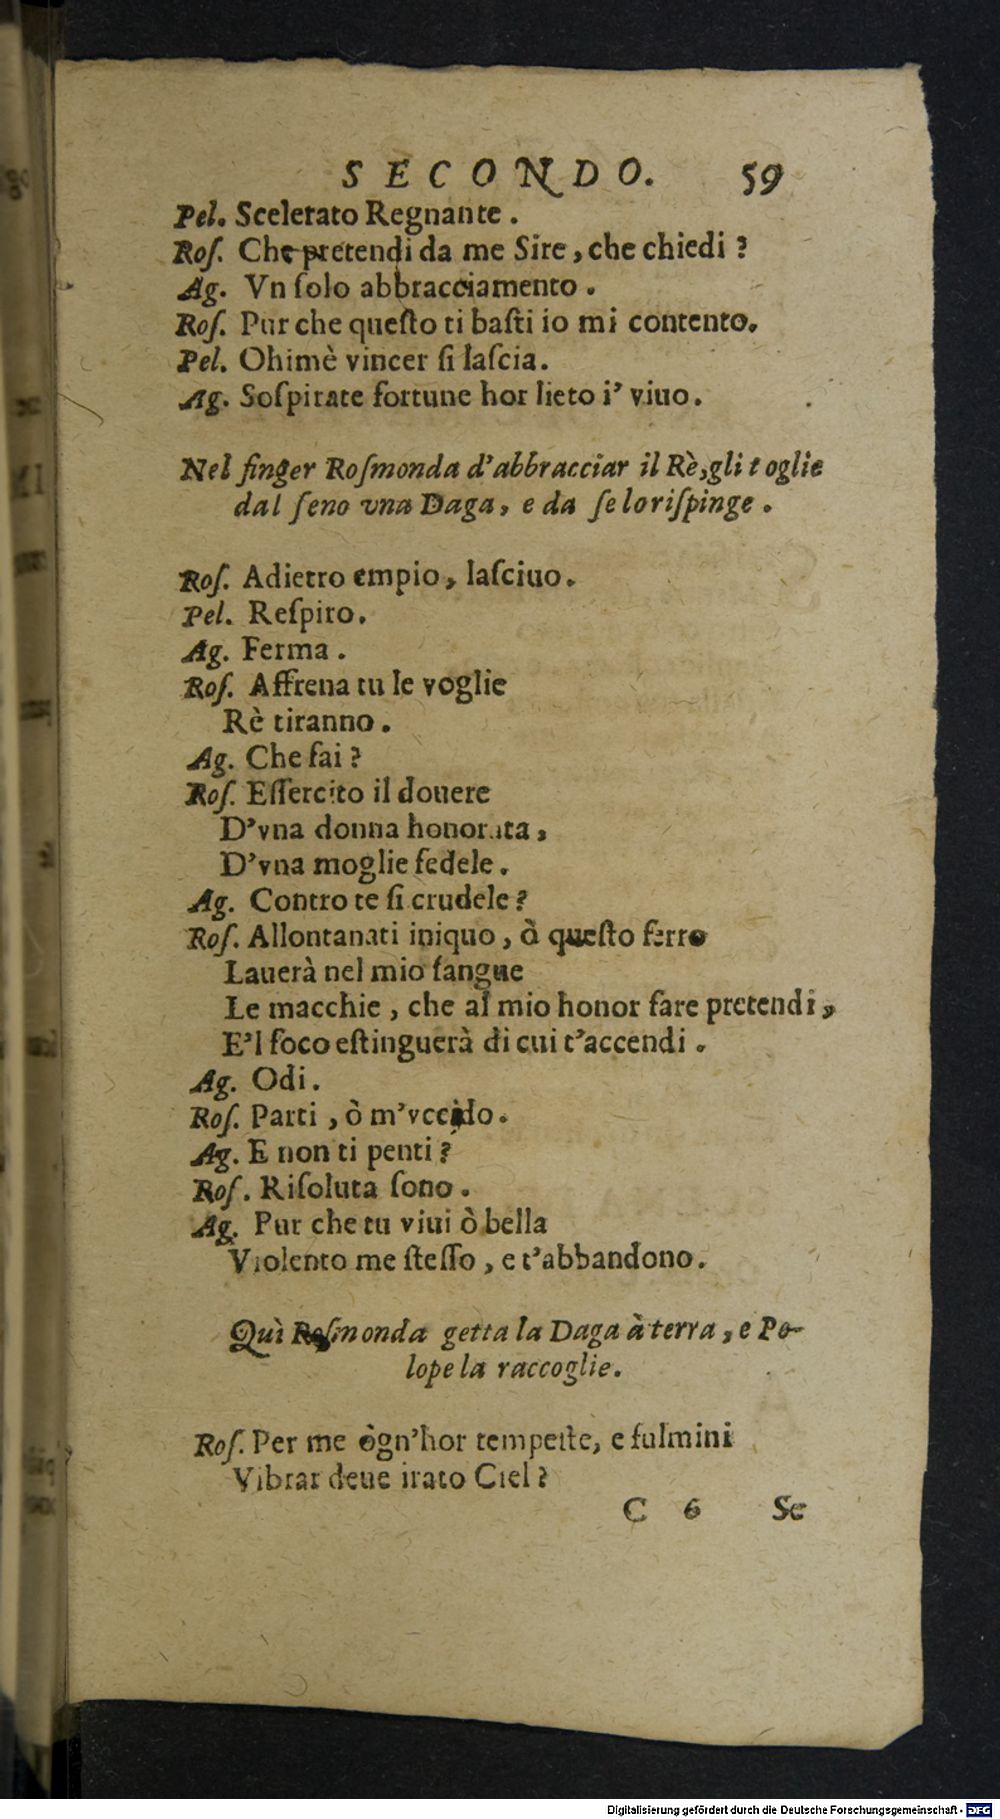 SECONDO. 59
Pel. Scelerato Regnante.
Roſ. Che pretendi da me Sire, che chiedi?
Ag. Vn ſolo abbracciamento.
Roſ. Pur che queſto ti baſti io mi contento.
Pel. Ohimè vincer ſi laſcia.
Ag. Soſpirate fortune hor lieto i' viuo.
Nel finger Roſmonda d'abbracciar il Rè, gli toglie
dal ſeno vna Daga, e da ſe lo riſpinge.
Roſ. Adietro empio, laſciuo.
Pel. Reſpiro.
Ag. Ferma.
Roſ. Affrena tu le voglie
Rè tiranno.
Ag. Che fai?
Roſ. Eſſercito il douere
D'vna donna honorata,
D'vna moglie fedele.
Ag. Contro te ſi crudele?
Roſ. Allontanati iniquo, ò queſto ferro
Lauerà nel mio ſangue
Le macchie, che al mio honor fare pretendi,
E'l foco eſtinguerà di cui t'accendi.
Ag. Odi.
Roſ. Parti, ò m'vccido.
Ag. E non ti penti?
Roſ. Riſoluta ſono.
Ag. Pur che tu viui ò bella
Violento me ſteſſo, e t'abbandono.
Quì Roſmonda getta la Daga à terra, e Pe-
lope la raccoglie.
Roſ. Per me ògn'hor tempeſte, e fulmini
Vibrar deue irato Ciel?
C 6 Se
Digitalisierung gefördert durch die Deutsche Forschungsgemeinschaft - DFG